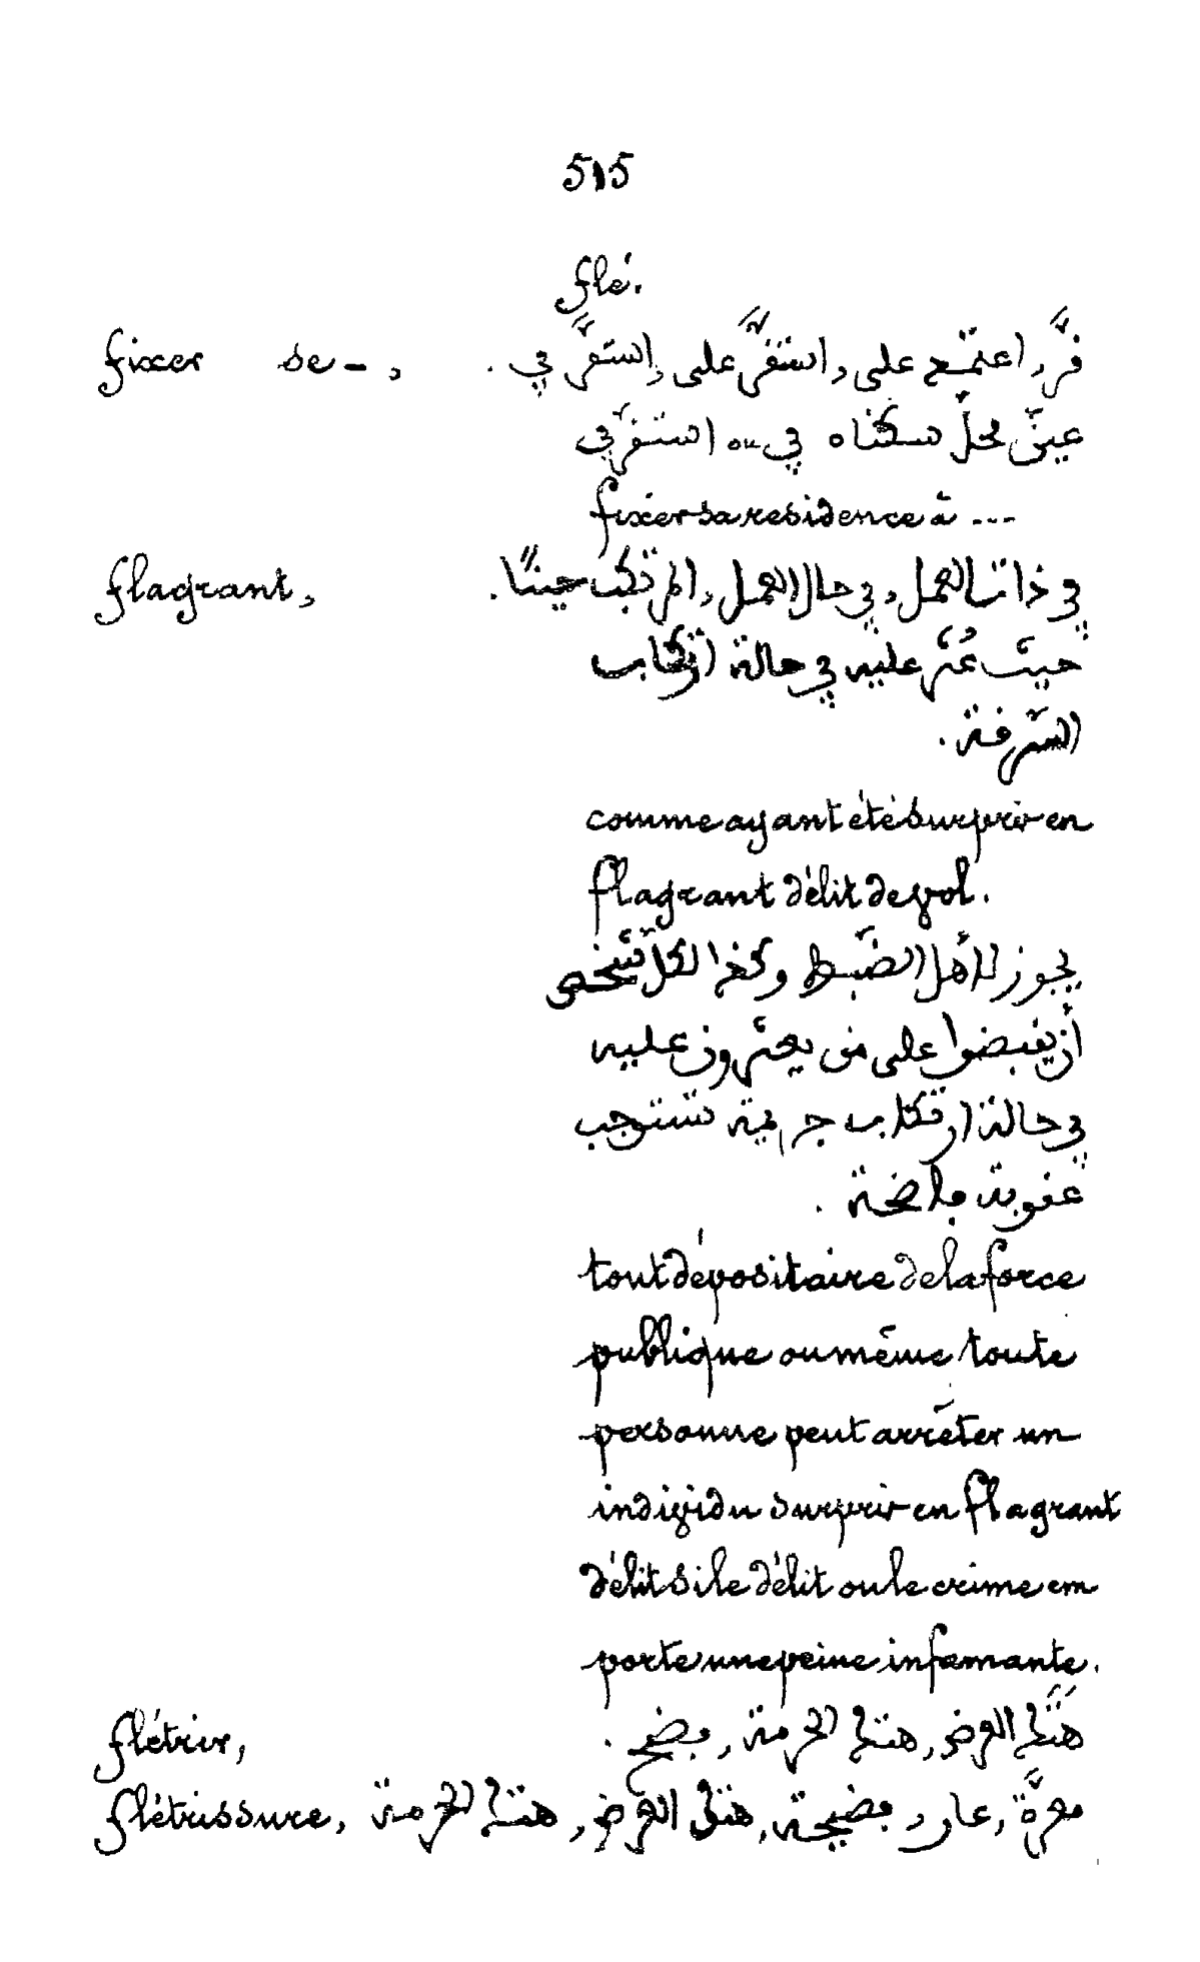 515
flé.
fixer se - , قرّ, اعتمد على, استقرّ على, استقرّ في .
عيّن محلّ سكناه في ou استقرّ في
fixer sa residence à ...
flagrant, في ذات العمل, في حال العمل, المرتكب حينًا .
حيث عُثر عليه في حالة ارتكاب
السّرقة .
comme ayant été surpris en
flagrant délit de vol.
يجوز لأهل الضّبط وكذا لكلّ شخص
أن يقبضوا على من يعثرون عليه
في حالة ارتكاب جريمة تستوجب
عقوبة فاضحة .
tout dépositaire de la force
publique ou même toute
personne peut arrêter un
individu surpris en flagrant
délit si le délit ou le crime em
porte une peine infamante.
flétrir, هتك العرض, هتك الحرمة, فضح .
flétrissure, معرّة, عار, فضيحة, هتك العرض, هتك الحرمة